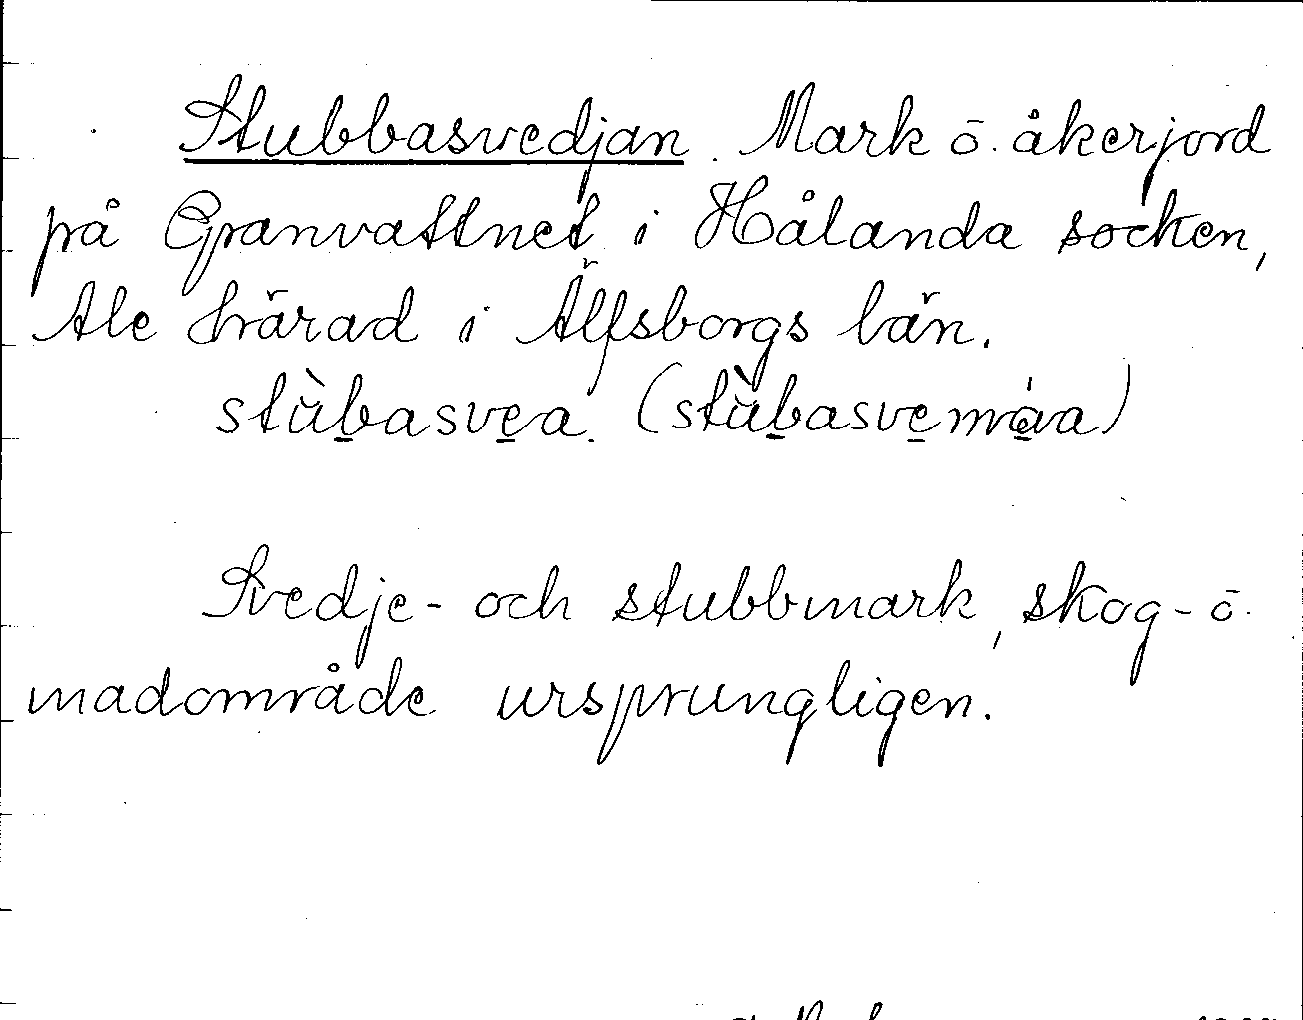 Stubbasvedjan. Mark ō. åkerjord
på Granvattnet i Hålanda socken,
Ale härad i Älfsborgs län.
stùb̲asve̲a. (stùb̲asve̲mȧ̲a)
Svedje- och stubbmark, skog- ō.
madområde ursprungligen.